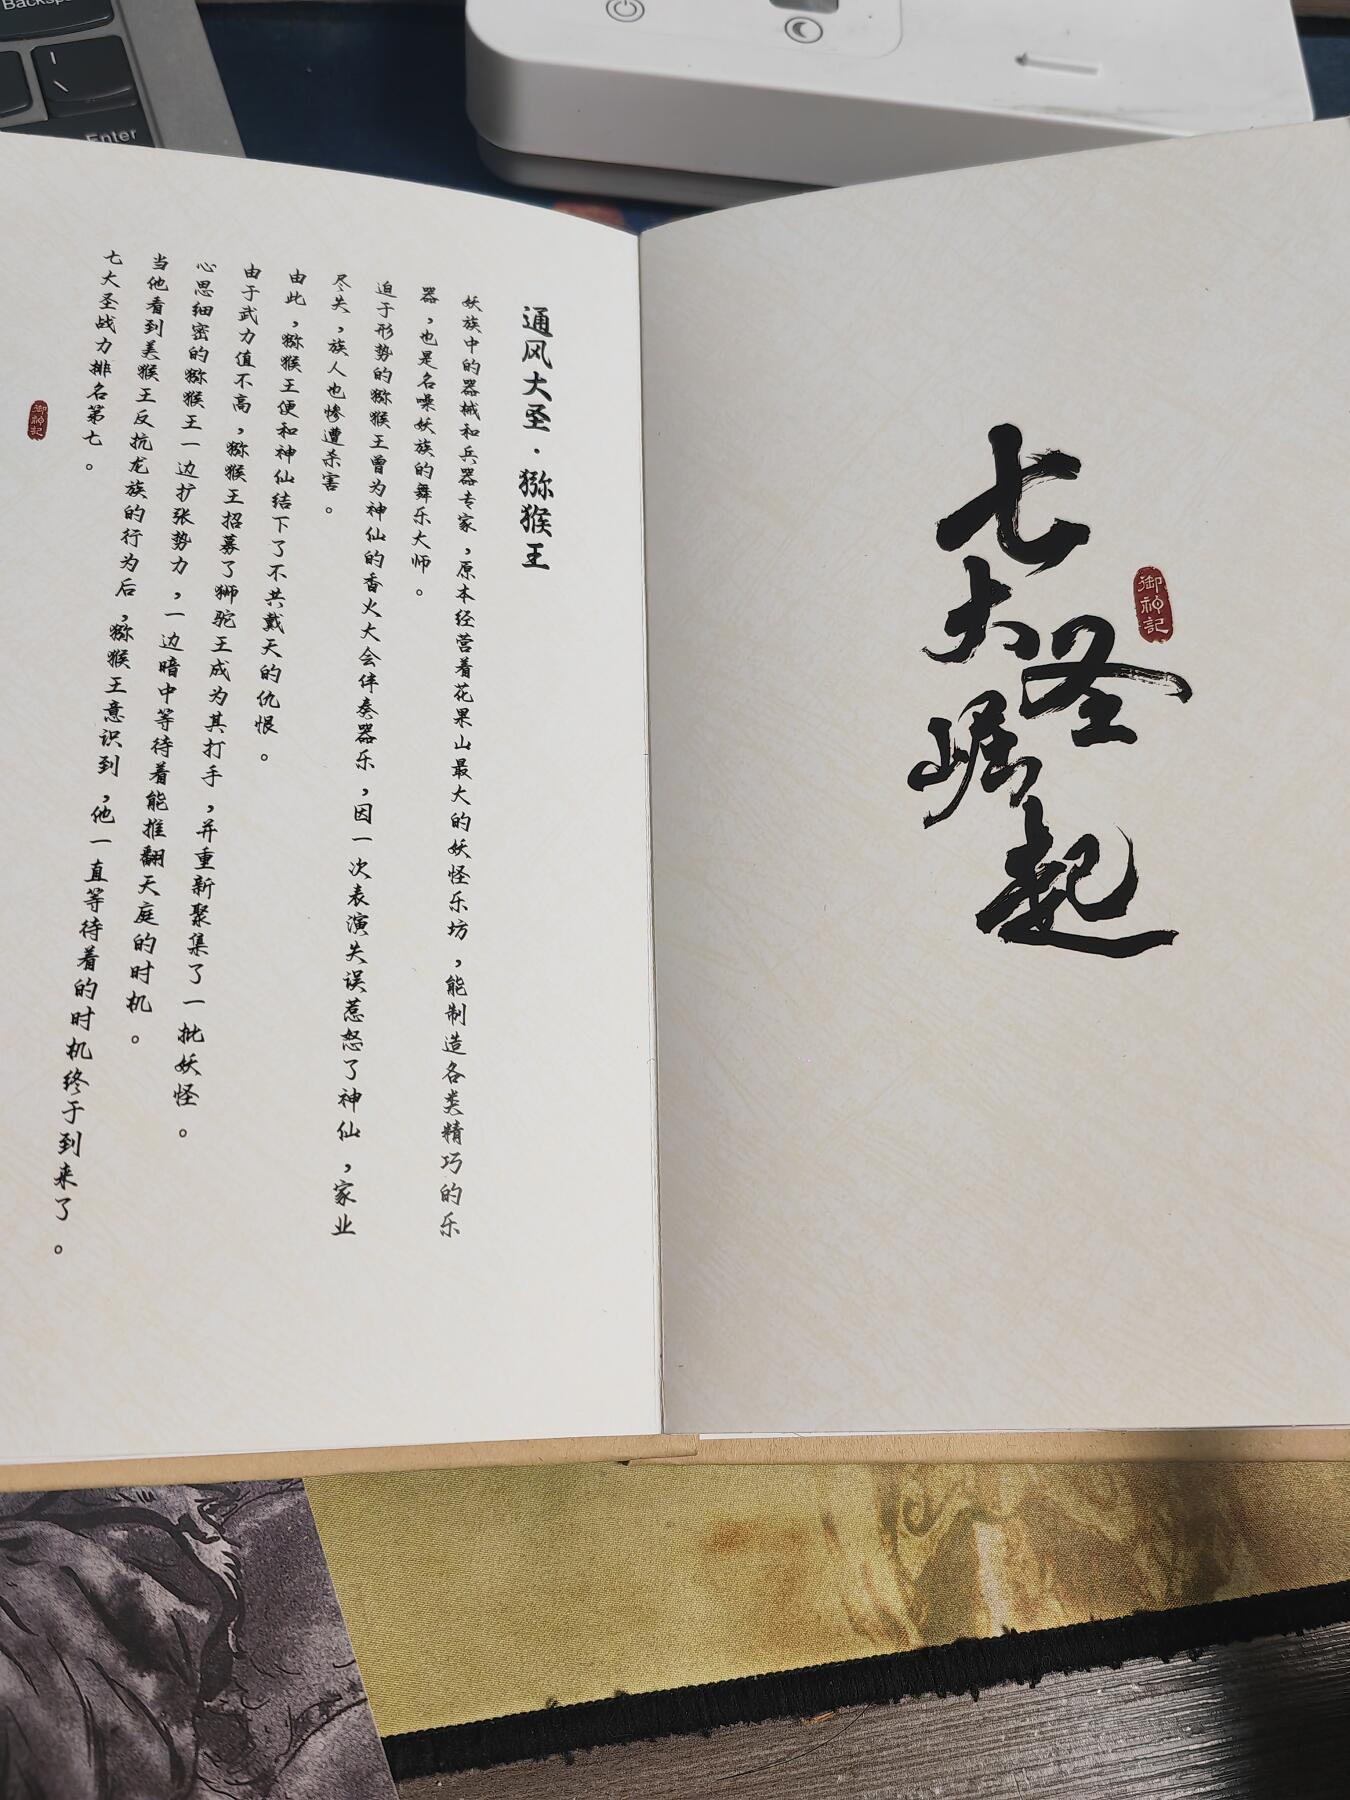 Backsp
Enter
七大圣崛起
御神記
通风大圣·猕猴王
妖族中的器械和兵器专家，原本经营着花果山最大的妖怪乐坊，能制造各类精巧的乐
器，也是名噪妖族的舞乐大师。
迫于形势的猕猴王曾为神仙的香火大会伴奏器乐，因一次表演失误惹怒了神仙，家业
尽失，族人也惨遭杀害。
由此，猕猴王便和神仙结下了不共戴天的仇恨。
由于武力值不高，猕猴王招募了狮驼王成为其打手，并重新聚集了一批妖怪。
心思细密的猕猴王一边扩张势力，一边暗中等待着能推翻天庭的时机。
当他看到美猴王反抗龙族的行为后，猕猴王意识到，他一直等待着的时机终于到来了。
七大圣战力排名第七。
御神記